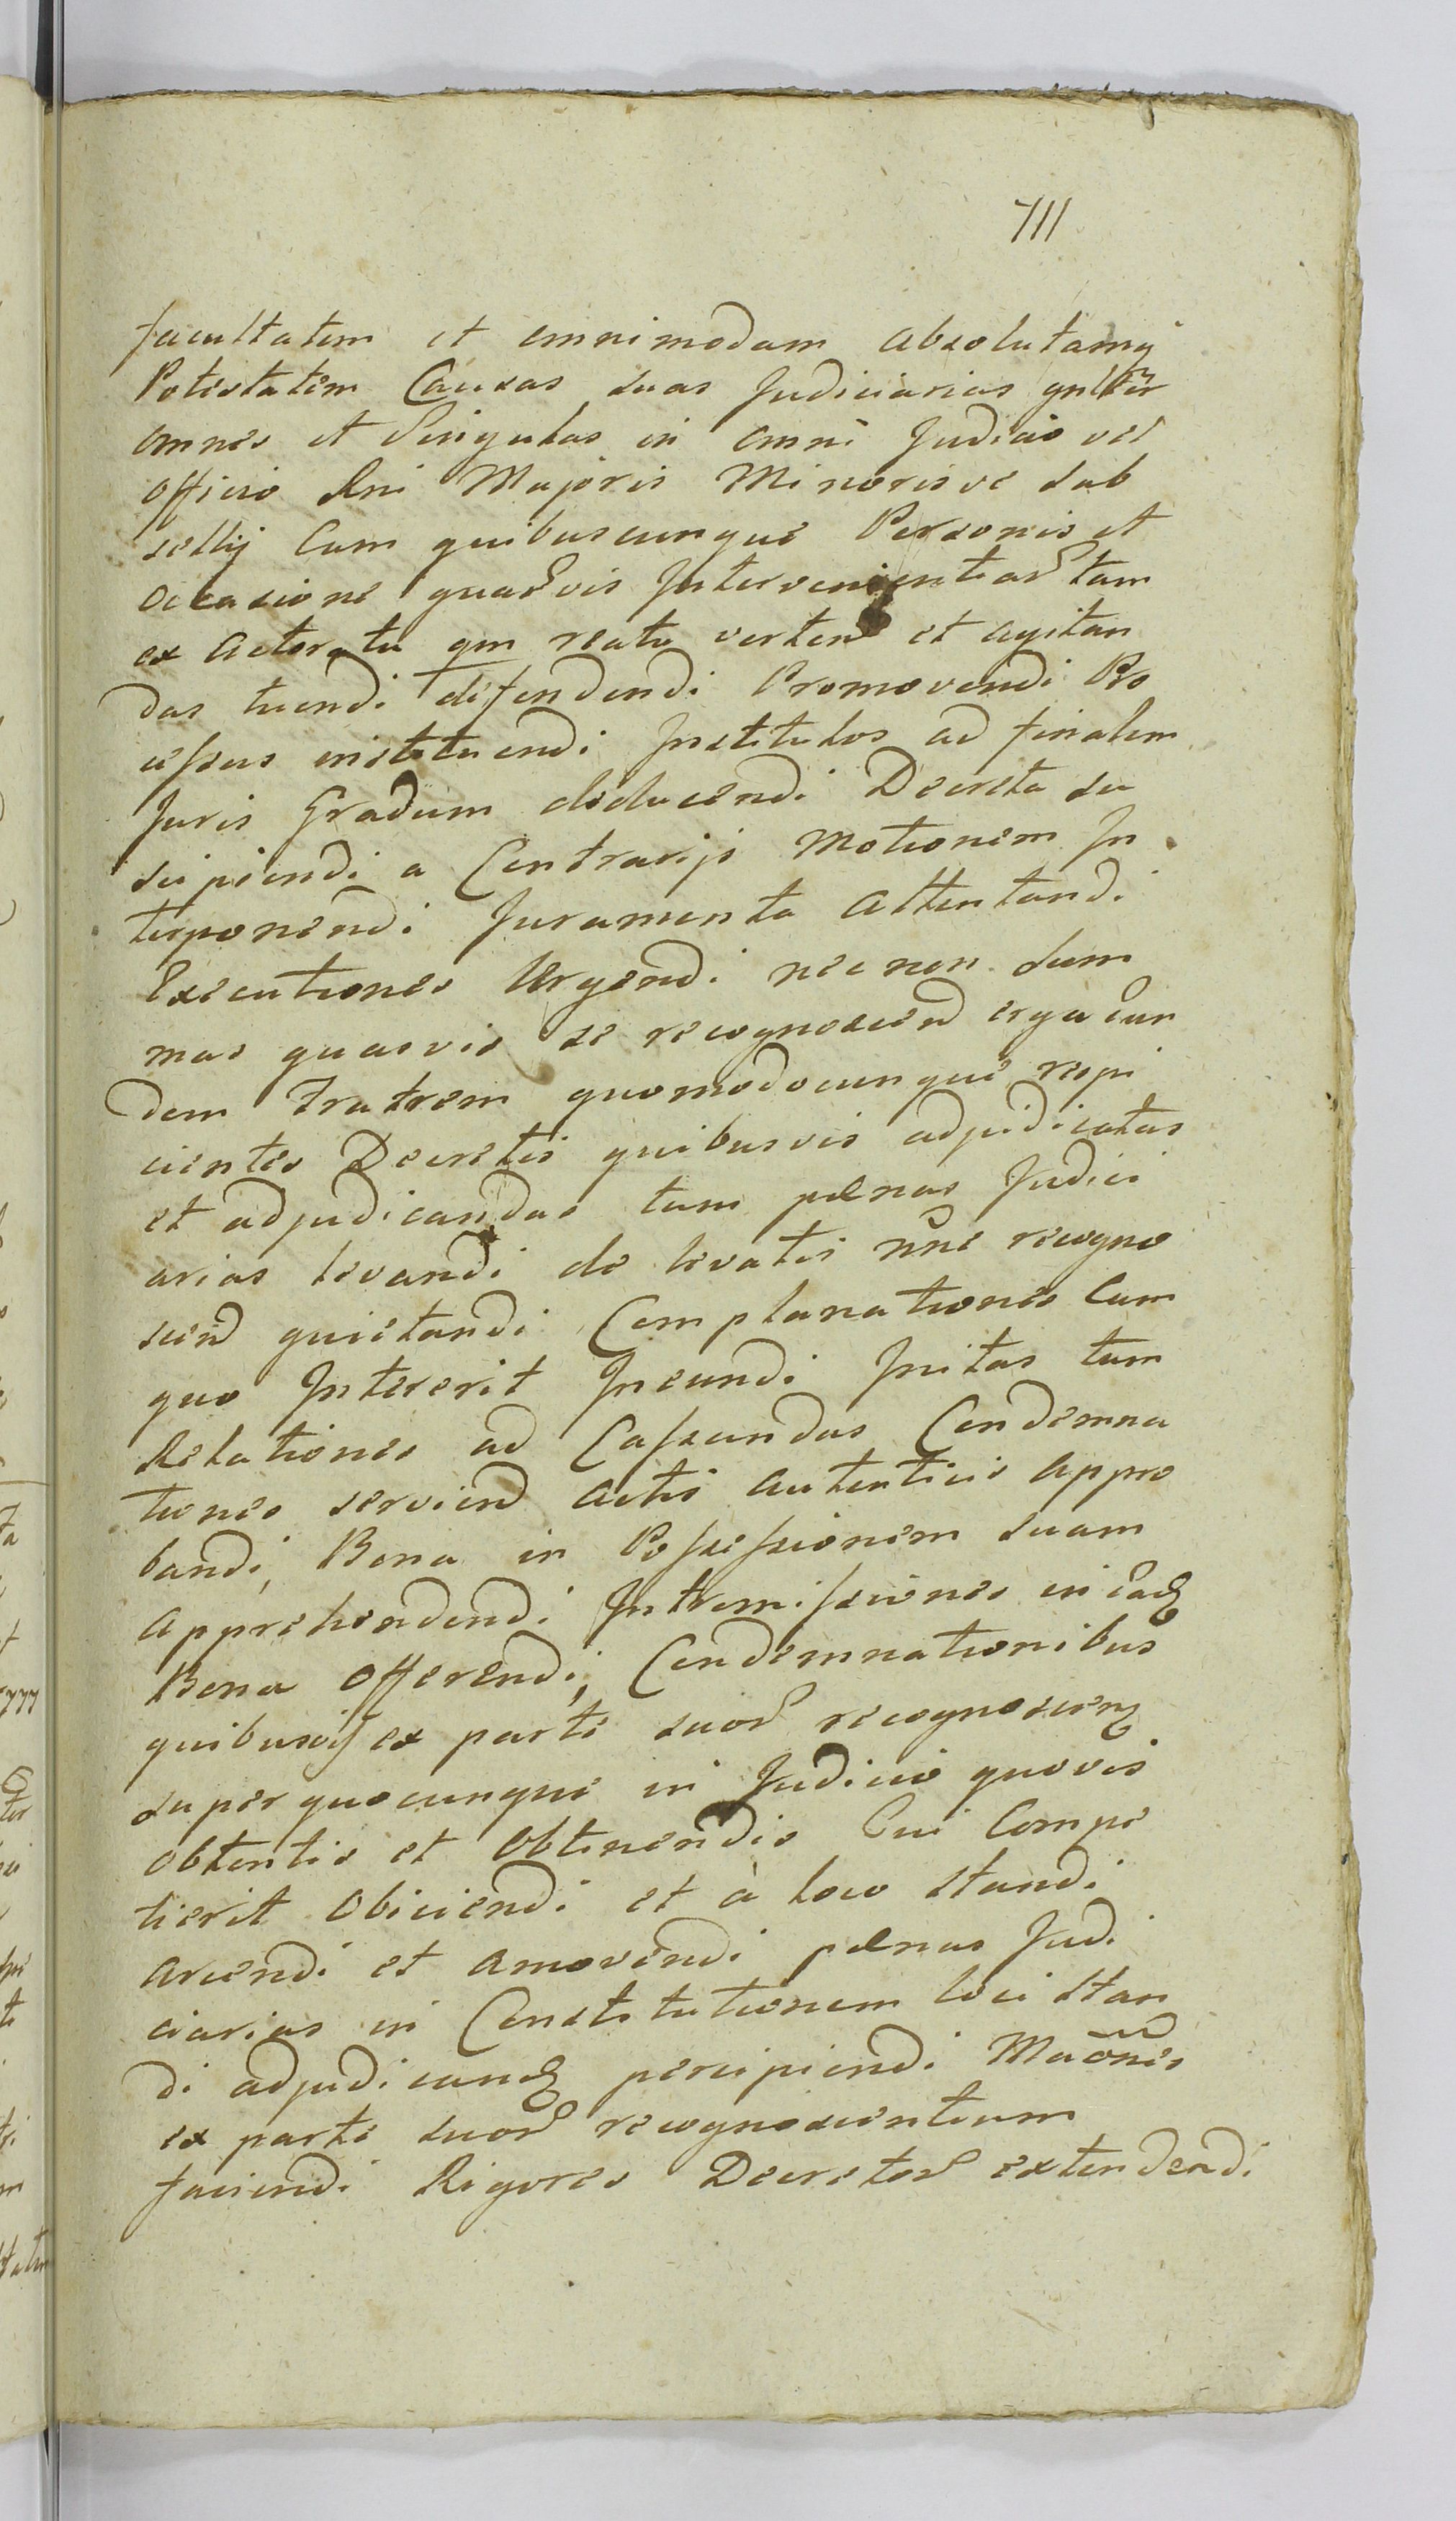 711
facultatem et omnimodam absolutamq
Potestatem Causas suas Judiciarias gnlter
omnes et Singulas in omni Judicio vel
officio Rni Majoris Minorisve sub
sellij Cum quibuscunque Personis et
occasione quavis Intervenientias tam
ex actoratu qm reatu verten et agitan
das tuendi defendendi Promovendi Pro
cessus instituendi Institutos ad finalem
Juris Gradum deducendi Decreta su
scipiendi a Contrarijs Motionem In
terponendi Juramenta attentandi
Executiones Urgendi nec non sum
mas quasvis se recognoscend erga eun
dem fratrem quomodocunque respi
cientes Decretis quibusvis adjudicatas
et adjudicandas tum pænas Judici
arias levandi de levatis nne recogno
scend quietandi Complanationes Cum
quo Intererit Ineundi Initas tum
Relationes ad Cassandas Condemna
tiones serviend actis autenticis appro
bandi, Bona in Possessionem suam
apprehendendi Intromissiones in eadq
Bona offerendi, Condemnationibus
quibusvis ex parte suor recognoscenq
super quocunque in Judicio quovis
obtentis et obtinendis Cui Compe
tierit obiiciendi et à loco standi
arcendi et amovendi pænas Judi
ciarias in Constitutionem loci stan
di adjudicandq percipiendi Maõnes
ex parte suor recognoscentium
faciendi Rigores Decretor extendendi